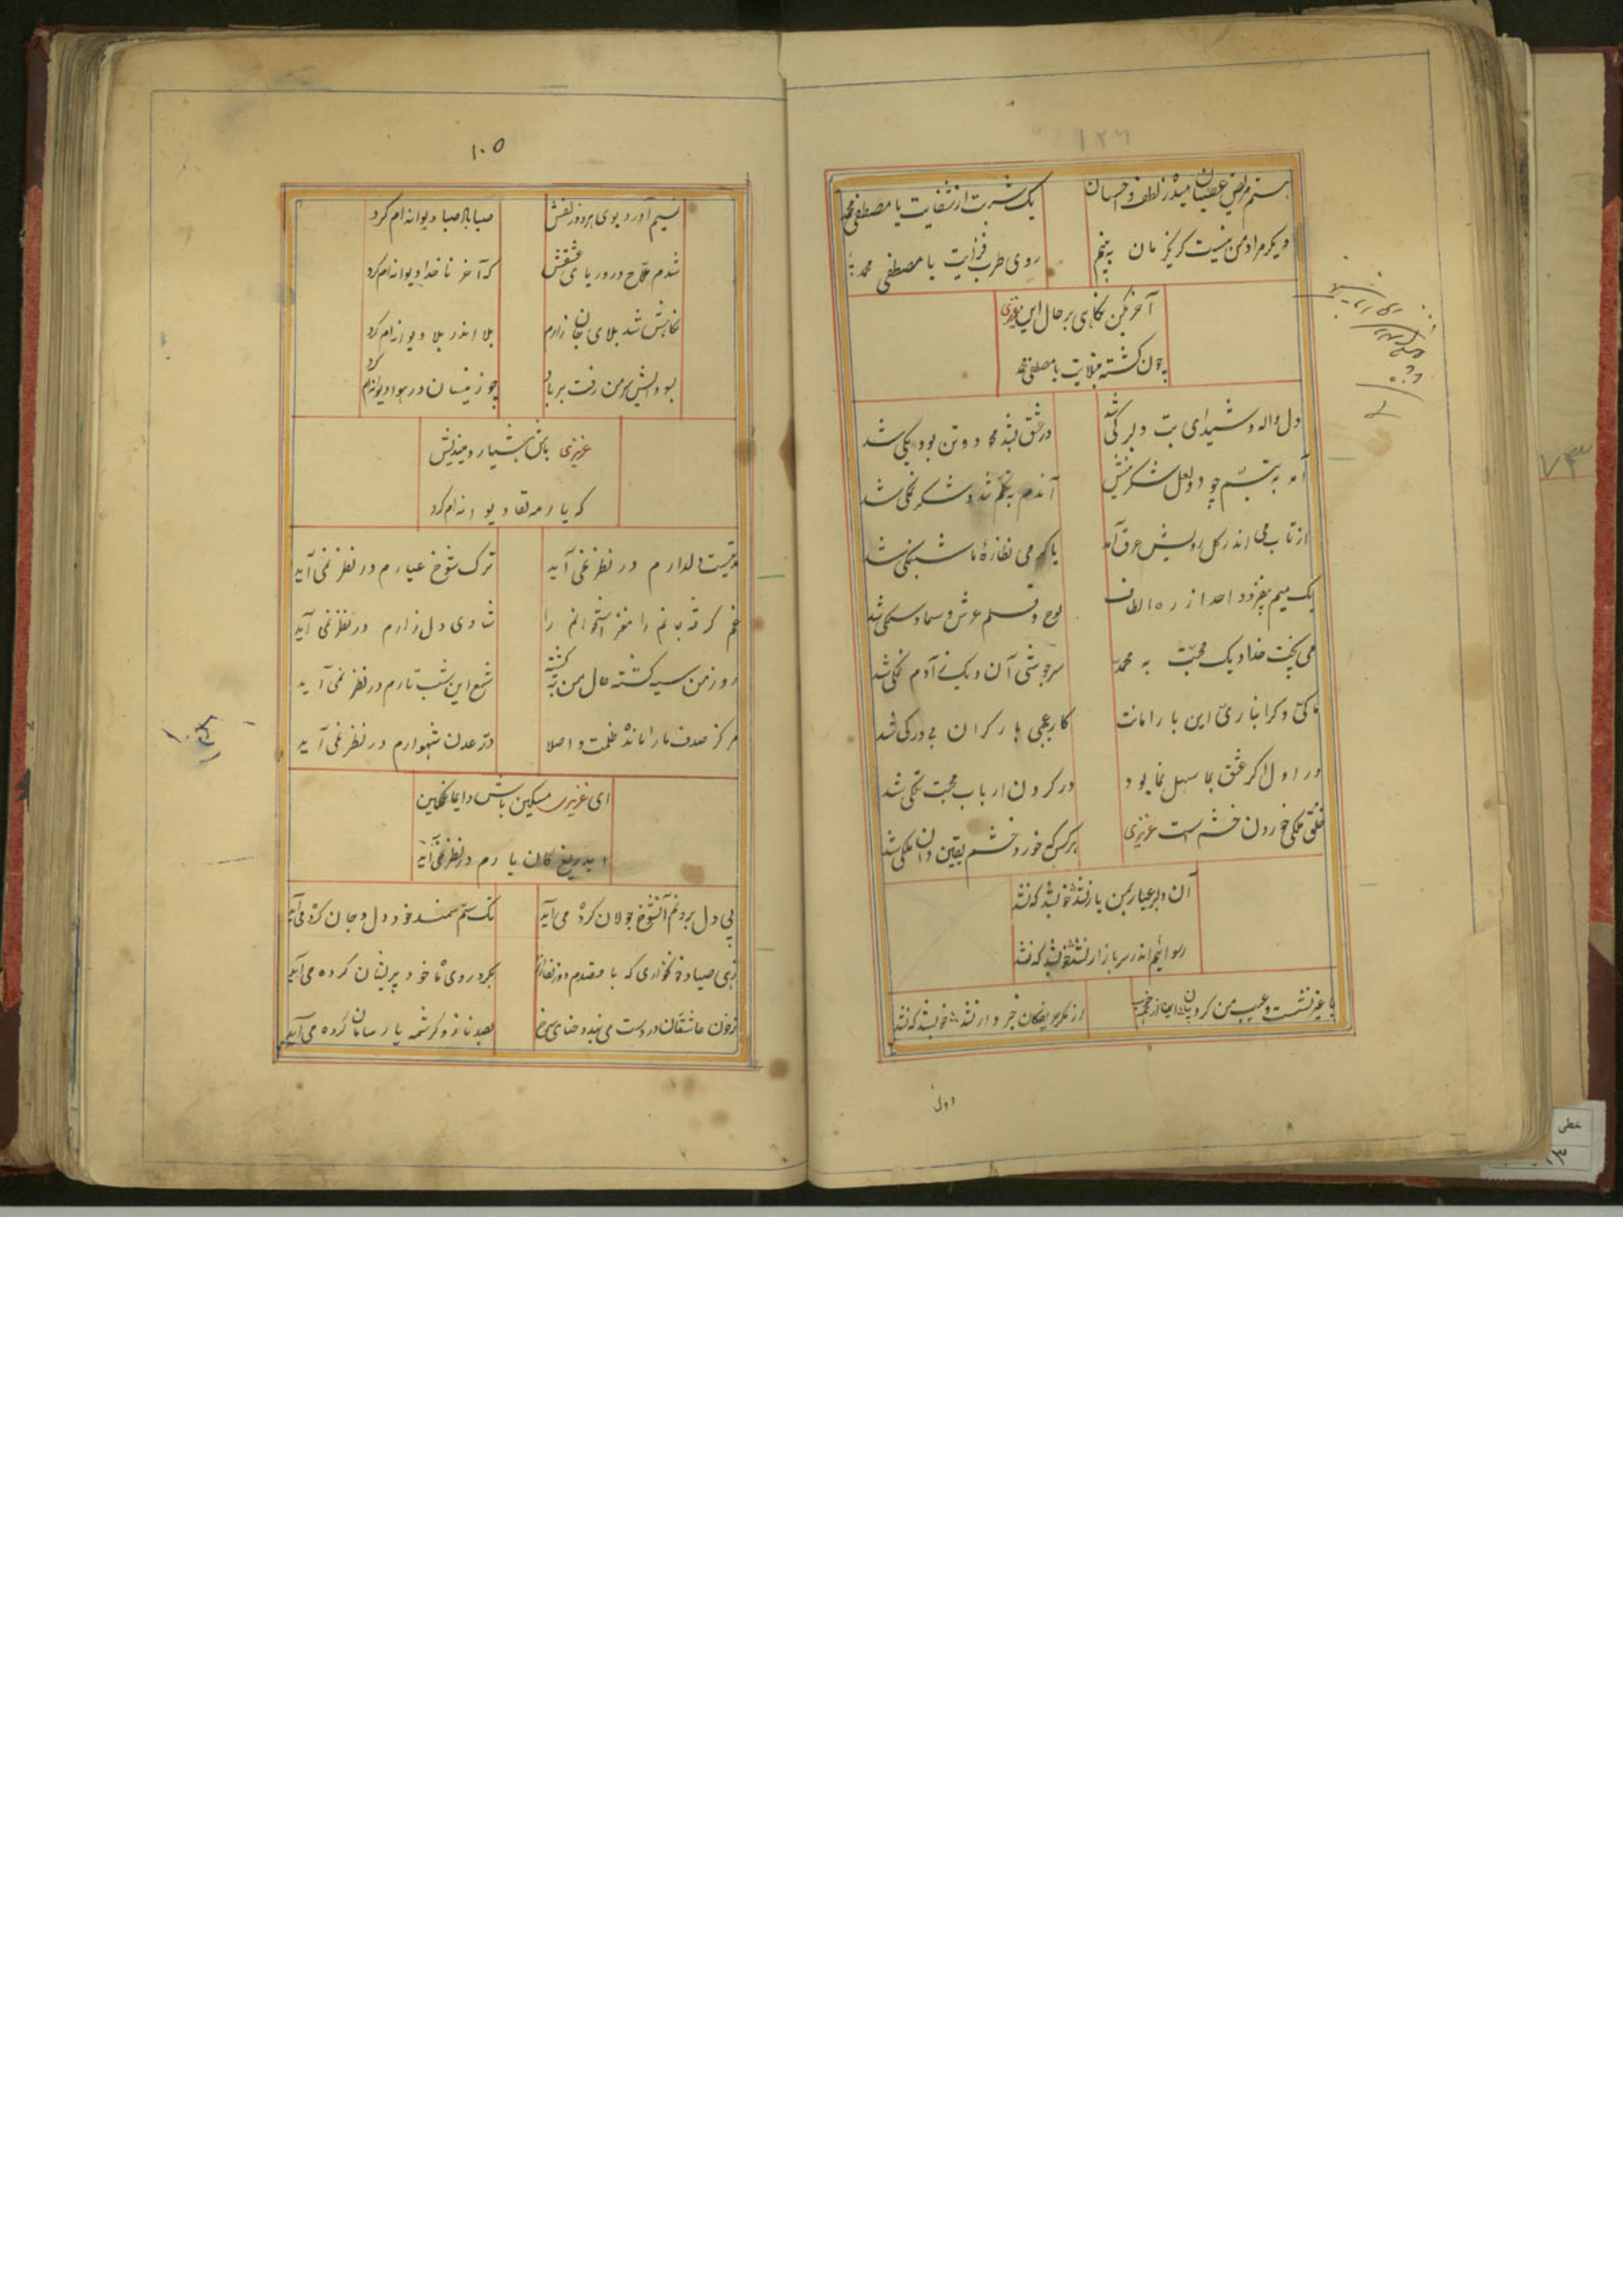 ۱۲۶
هستم مریض عصیان میدهٔ ز لطف و احسان
یک شربت از شفایت یا مصطفی محمد
دیکر مراد من نیست کر یکزمان به بینم
روی طرب فزایت یا مصطفی محمد
آخر بکن نکاهی بر حال این عزیزی
چون کشته مبتلایت یا مصطفی محمد
دل واله و شیدای بت دلبر کی شد
در عشق بتم دو تن بود یکی شد
آمد به تبسم چو دو لعل شکرینش
آندم به تکلم شد و شکر نمکی شد
از تاب می اندر کل رویش عرق آمد
یا می نظارهٔ ما شبنمکی شد
یک میم بیفزود احد از ره الطاف
لوح و قلم و عرش و سما و سمکی شد
می پخت خدا دیک محبت به محمد
سرجوشی آن دیک آدم نمکی شد
ما کی و کرانباری این بار امانت
کار عجبی بار کران
در اول اکر عشق بما سهل نما بود
در کردن ارباب محبت
خلق ملکی خوردن خشم است عزیزی
هر کس که خورد خشم یقین دان ملکی شد
آن دلبر عیار بمن یار نشد خوب شد که نشد
رسوائیم اندر سر بازار نشد خوب شد که نشد
با غیر نشست و عیب من کرد بیان
از مکر رقیبکان خبردار نشد خوب شد که نشد
اول
۱۰۵
نسیم آورد بوی هر دو زلفش
صبا بالا صبا دیوانه ام کرد
شدم ملاح در دریای عشقش
که آخر ناخدا دیوانه ام کرد
نکاهش شد بلای جان زارم
بلا اندر بلا دیوانه ام کرد
بسودایش سر من رفت بر باد
چو زینسان در هوا دیوانه ام کرد
عزیزی باش هشیار و میندیش
که یار مه لقا دیوانه ام کرد
مدتیست دلدارم در نظر نمی آید
ترک شوخ عیارم در نظر نمی آید
غم کرفته جانم را مغز استخوانم را
شادی دل زارم در نظر نمی آید
روز من سیه کشته حال من تبه کشته
شمع این شب تارم در نظر نمی آید
مرکز صدف ما را مانده ظلمت و اصلا
در عدن شهوارم در نظر نمی آید
ای عزیزی مسکین باش دایما غمکین
ایدریغ کان یارم در نظر نمی آید
پی دل بردنم آنشوخ جولان کرده می آید
سم سمند خود دل و جان کرده می آید
زهی صیاد خونخواری که با مقدم دو زلفانرا
بکرد روی ماه خود پریشان کرده می آید
ز خون عاشقان در دست می بندد حنای سرخ
بصد ناز و کرشمه پارسایان کرده می آید
خطی